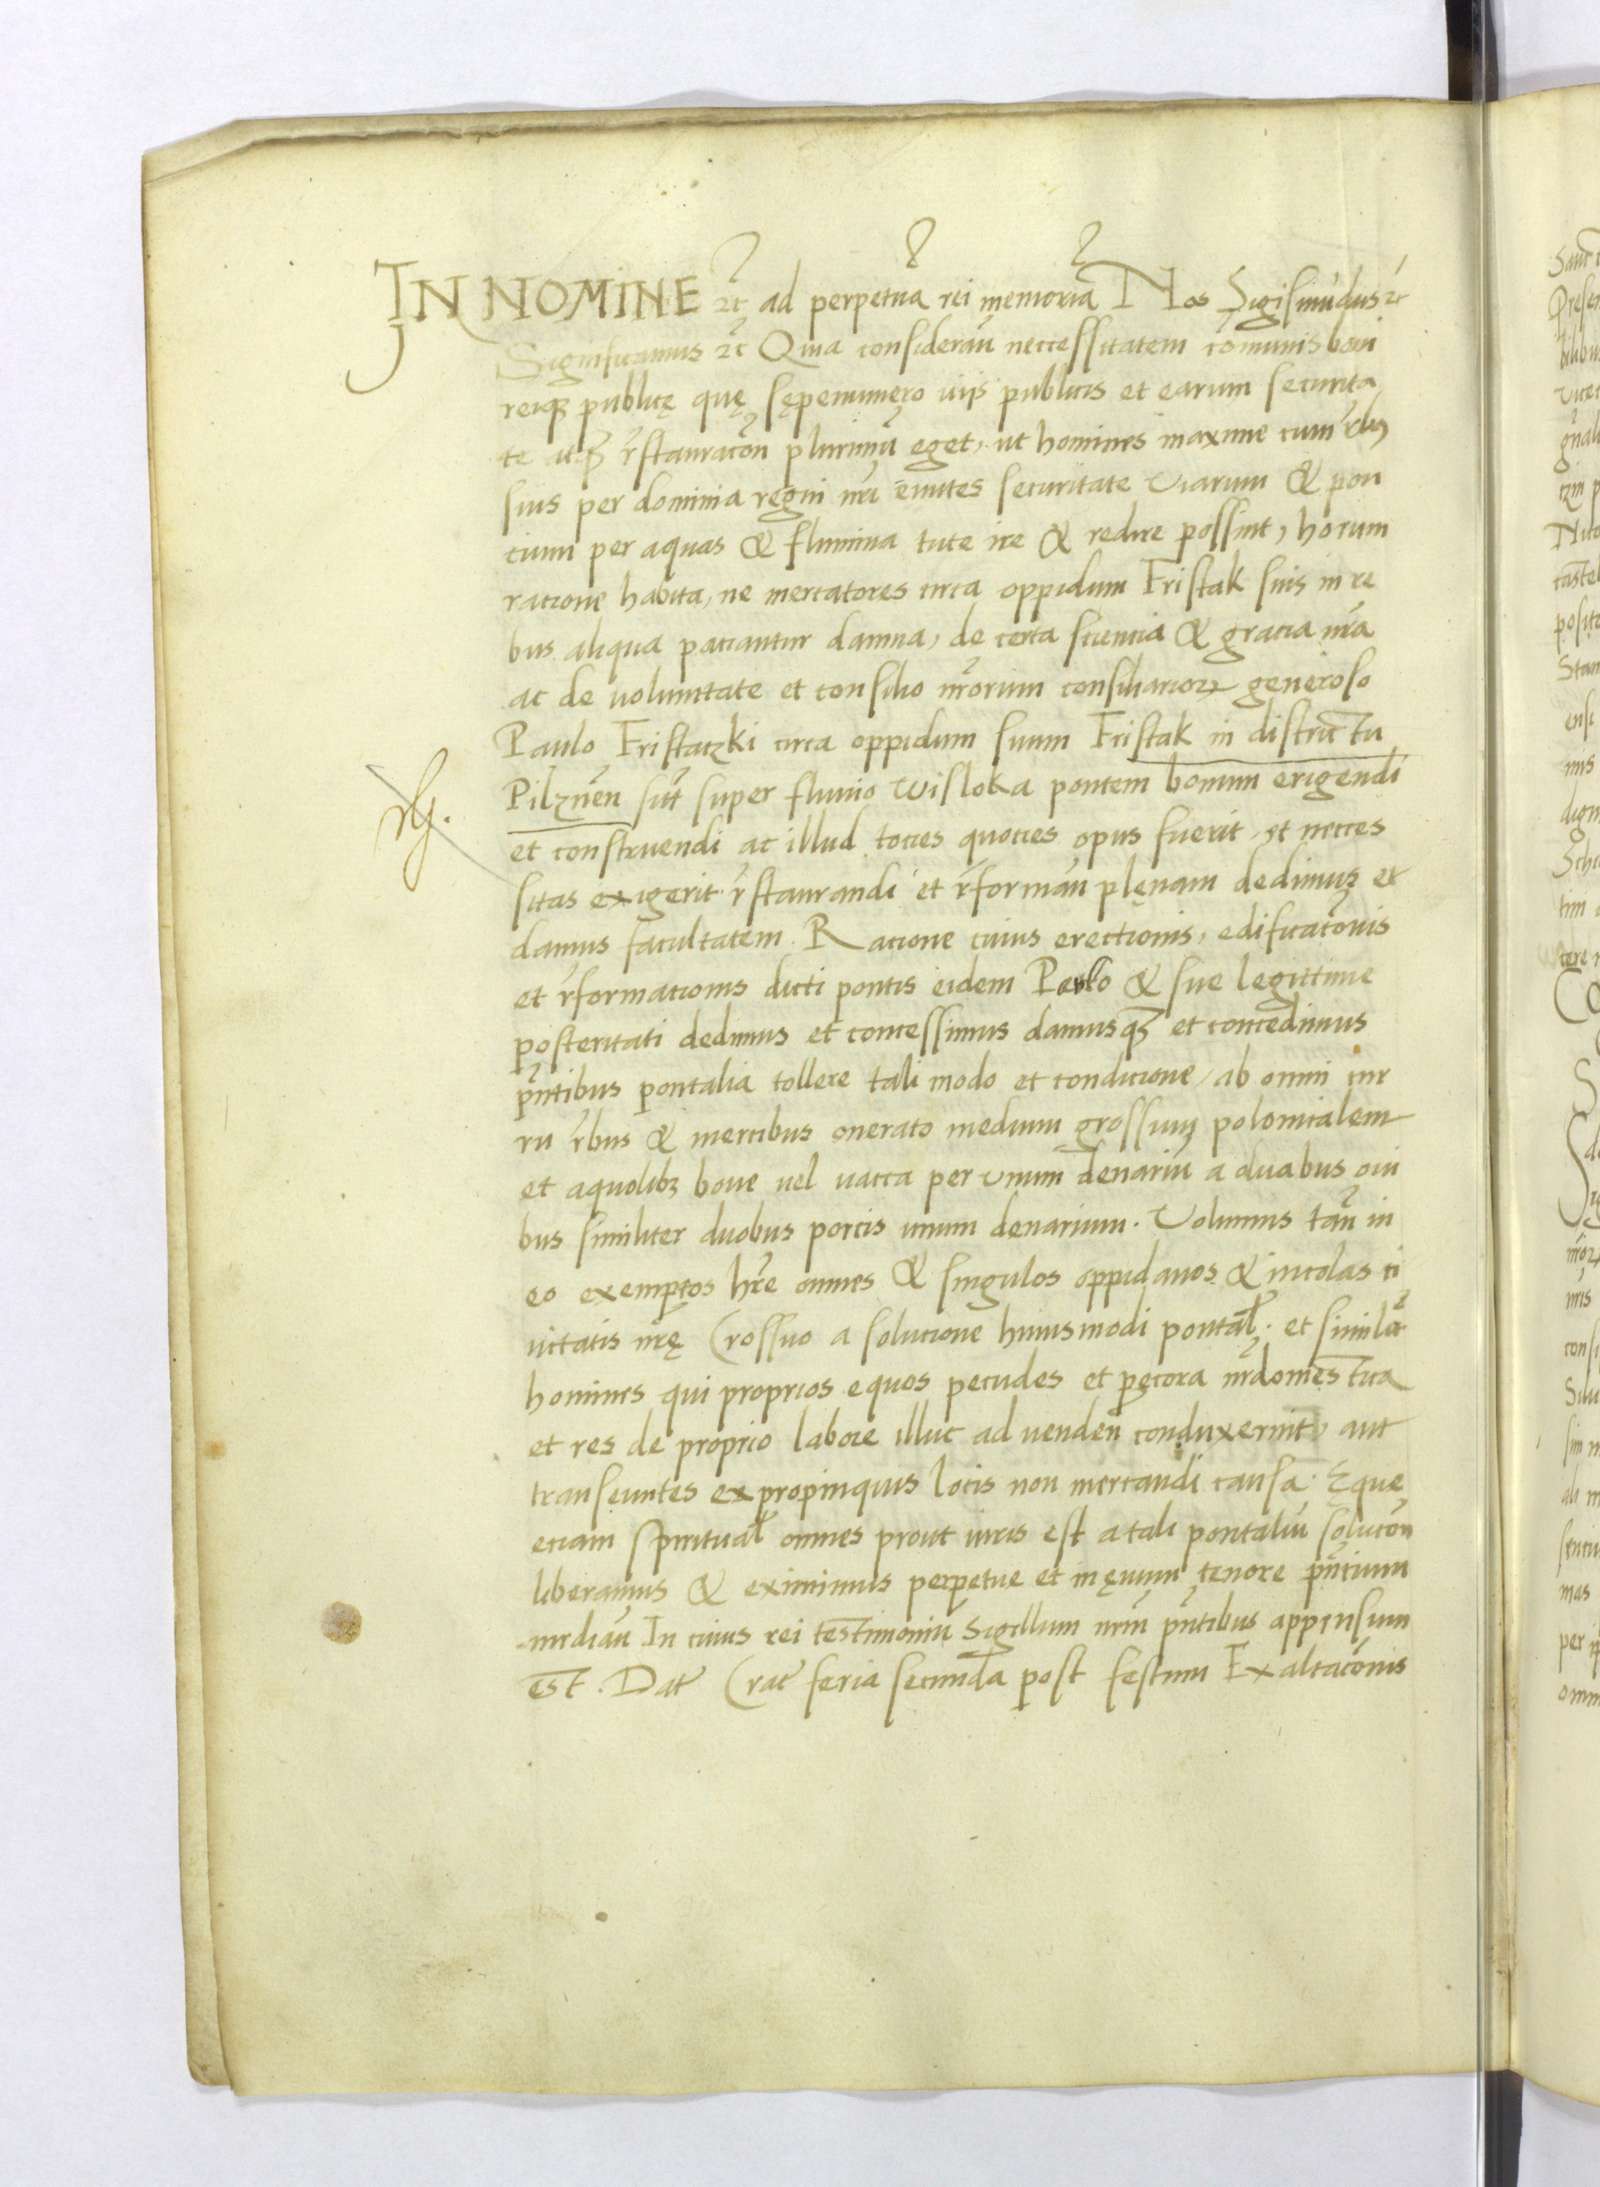 IN NOMINE ꝛc̄ ad perpetuā rei memoriā Nos Sigismūdus ꝛc
Significamus ꝛc̄ Quia consideraň neccessitatem com̄unis boni
reiqꝫ publicę quę sępenumero viis publicis et earum securita
te atqꝫ r̄stauracōn plurimū eget, ut homines maxime cum r̄bꝫ
suis per dominia regni nr̄i eūntes securitate viarum & pon
cium per aquas & flumina tute ire & redire possint, horum
racione habita, ne mercatores circa oppidum Fristak suis in re
bus aliqua paciantur damna, de certa sciencia & gracia nr̄a
ac de voluntate et consilio nr̄orum consiliarioꝝ generoso
Paulo Fristaczki circa oppidum suum Fristak in districtu
Pilznen̄ sit̄ super fluuio Wisloka pontem bonum erigendi
et construendi ac illud tocies quocies opus fuerit, et necces
sitas exigerit r̄staurandi et r̄forman̄ plenam dedimus et
damus facultatem. Racione cuius erectionis, edificacōnis
et r̄formacionis dicti pontis eidem Paulo & sue legittime
posteritati dedimus et concessimus damusqꝫ et concedimus
pn̄tibus pontalia tollere tali modo et condicione, ab omni cur
ru r̄bus & mercibus onerato medium grossum polonicalem
et aquolibꝫ boue vel vacca per vnum denariū a duabus oui
bus similiter duobus porcis unum denarium. Volumus tam̄ in
eo exemptos hr̄e omnes & singulos oppidanos & incolas ci
vitatis nr̄ę Crossno a solucione huiusmodi pontal̄. et similit̄
homines qui proprios equos pecudes et pecora nr̄a domestica
et res de proprio labore illuc ad venden̄ conduxerint, aut
transeuntes ex propinquis locis non mercandi causa. Eque
eciam spiritual̄ omnes prout iuris est a tali pontaliū solucōn
liberamus & eximimus perpetue et in ęuum tenore pn̄tium
mediān In cuius rei testimoniū Sigillum nr̄m pn̄tibus appensum
est. Dat̄ Crac̄ feria secunda post festum Exaltacōnis